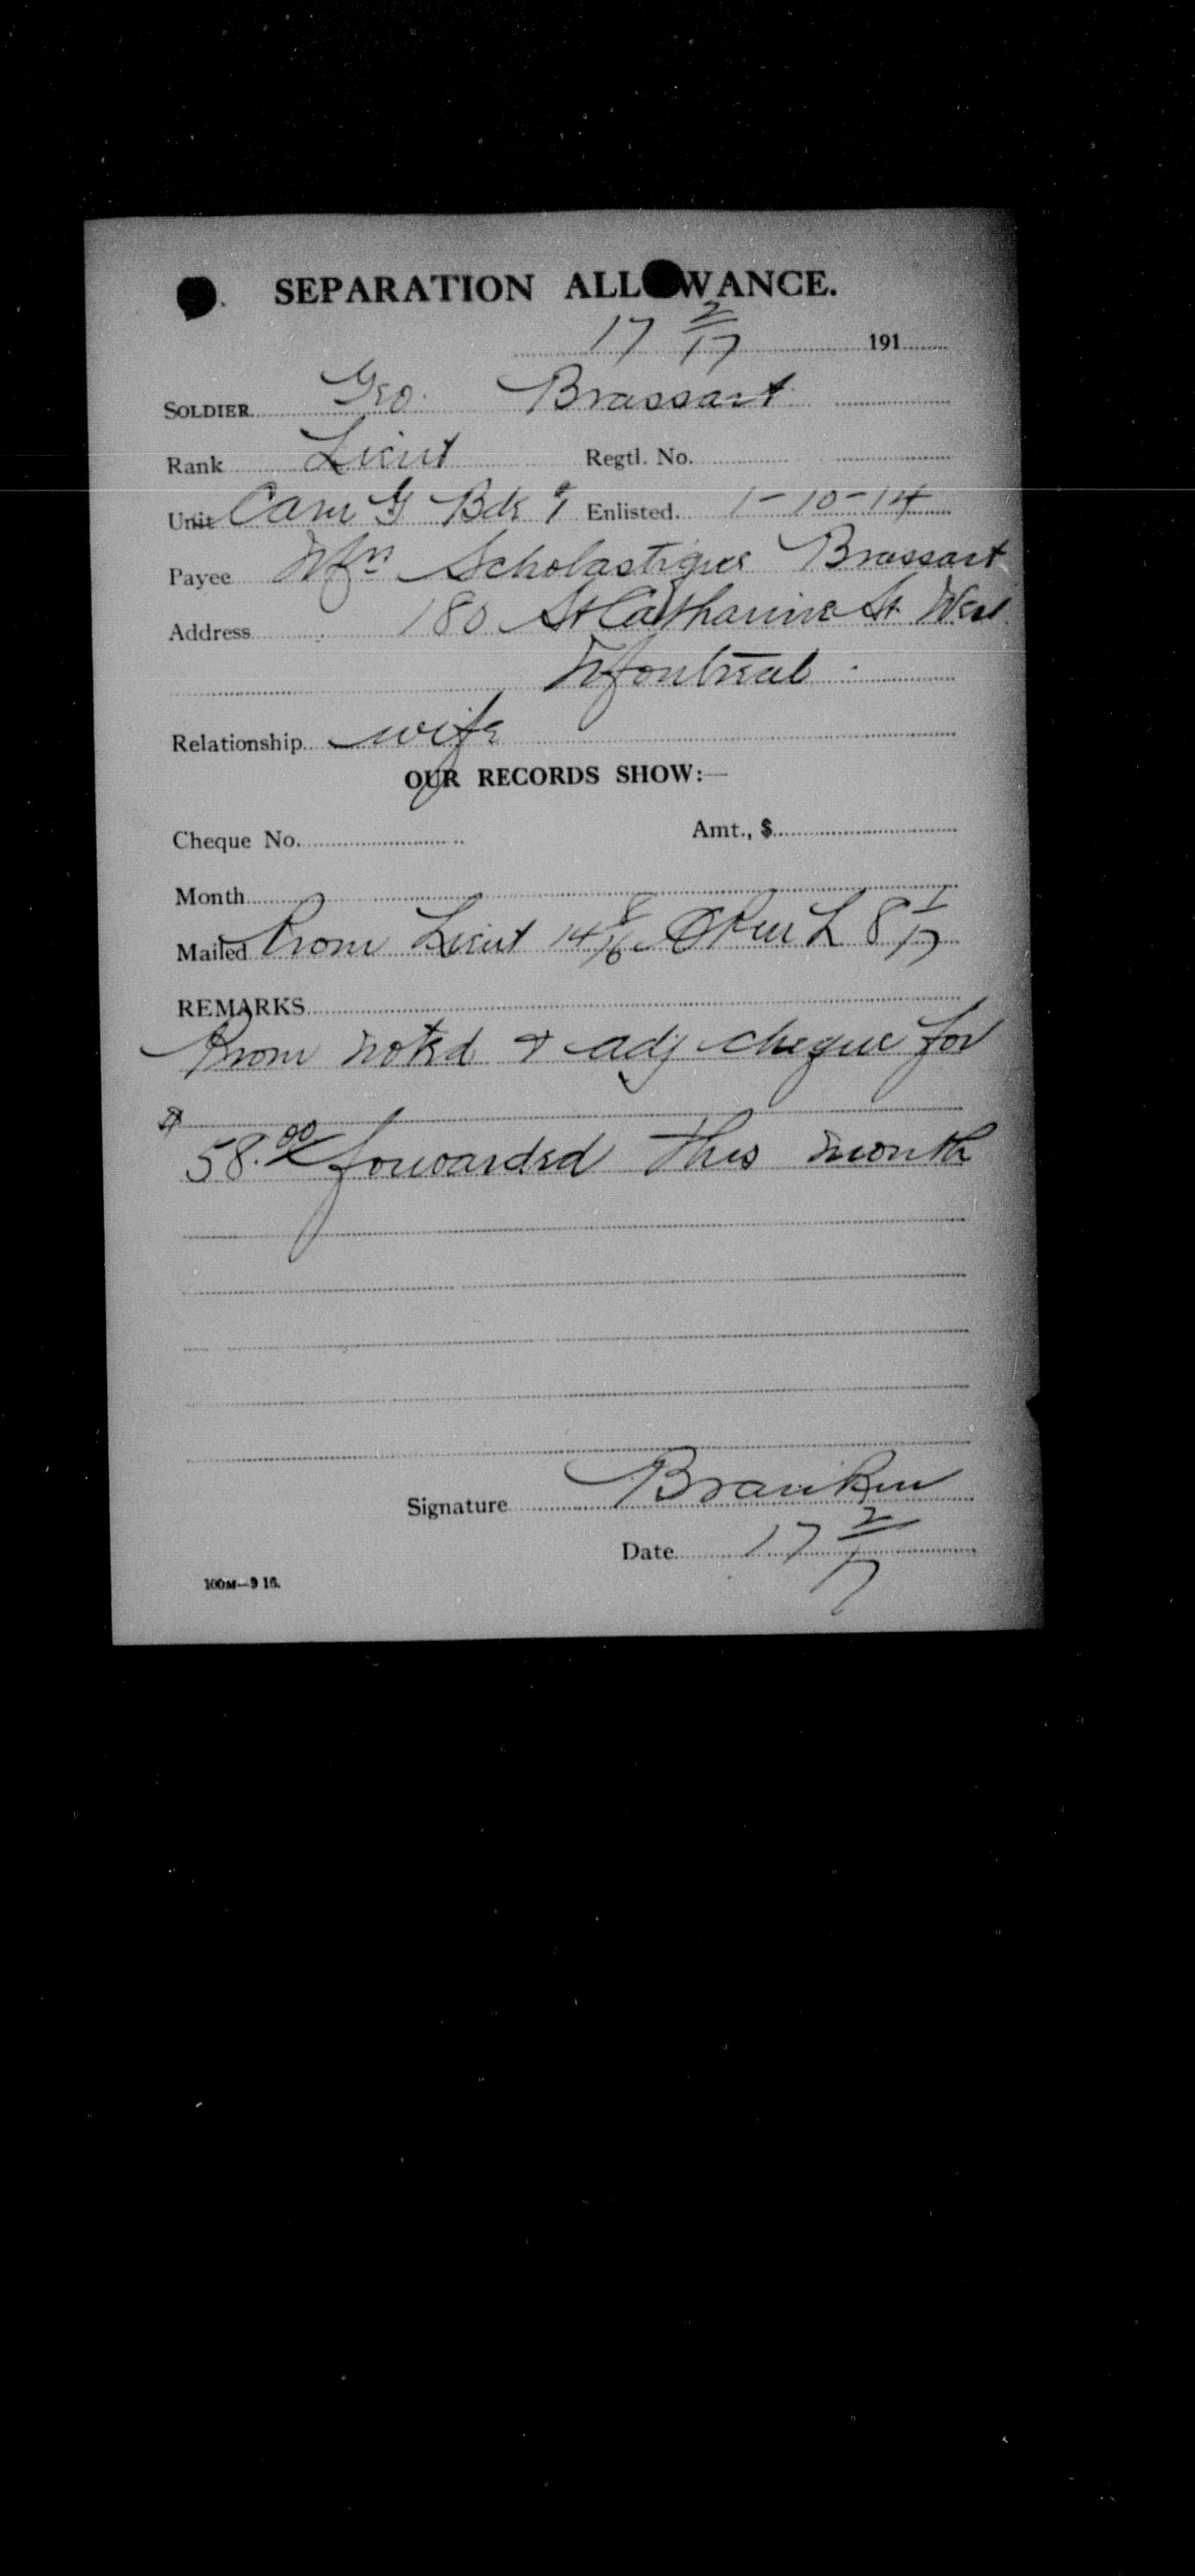 SEPARATION ALLOWANCE.
17 2/17 191
SOLDIER Geo. Brassart
Rank Lieut Regtl. No.
Unit Cam G Bde Enlisted. 1-10-14
Payee Mrs Scholastique Brassart
Address 180 St Catharine St West
Montreal
Relationship wife
OUR RECORDS SHOW:—
Cheque No. Amt., $
Month
Mailed Prom Lieut 14 8/16 L 8 1/17
REMARKS
Prom noted & adj cheque for
$
58.00 forwarded this month
Signature
Date 17 2/17
100M—9 16.